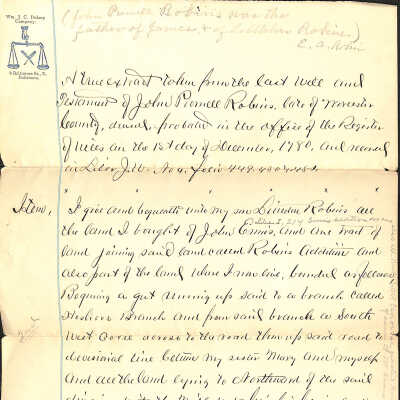 Wm. J. C. Dulany
Company,
Baltimore.
(John Purnell Robins was the
father of James, & of Littleton Robins.)
A true extract taken from the last will and
Testament of John Purnell Robins, late of Worcester
County, deceased, probated in the office of the Register
of Wills on the 1st day of December, 1780, and record
in Liber J.W. No 4, folio
Item, I give and bequeath unto my son Littleton Robins all
the land I bought of John Ennis, and one tract of
land joining said land called Robins Addition and
also part of the land where I now live, bounded as follows
Begining a gut running up said to a branch called
branch and from said branch a South
West across to the road then up said road to
divisional line between my sister Mary and myself
and all the land lying to Northward of the said